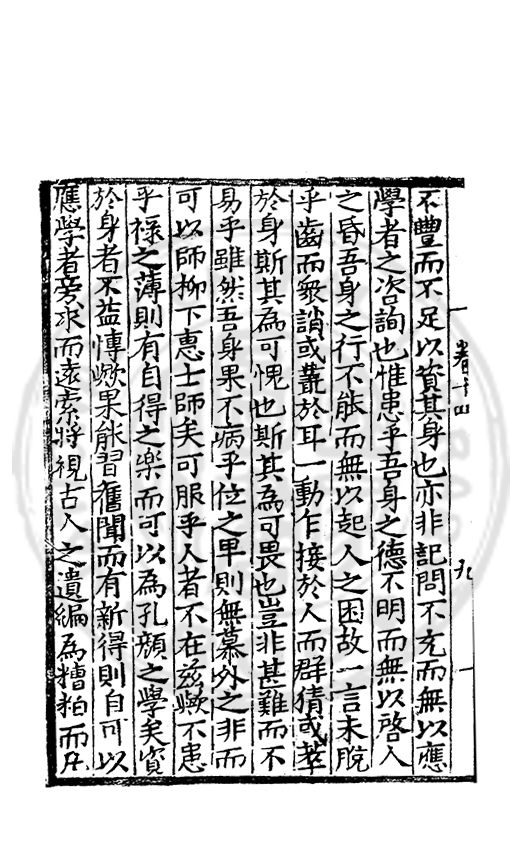 卷十四
九
不豐而不足以資其身也亦非記問不充而無以應
學者之咨詢也惟患乎吾身之德不明而無以啓人
之昏吾身之行不能而無以起人之困故一言未脫
乎齒而衆誚或叢於耳一動乍接於人而群猜或萃
於身斯其為可愧也斯其為可畏也豈非甚難而不
易乎雖然吾身果不病乎位之卑則無慕外之非而
可以師柳下惠士師矣可服乎人者不在茲歟不患
乎禄之薄則有自得之樂而可以為孔顏之學矣資
於身者不益慱歟果能習舊聞而有新得則自可以
應學者旁求而遠索將視古人之遺編為糟粕而凡